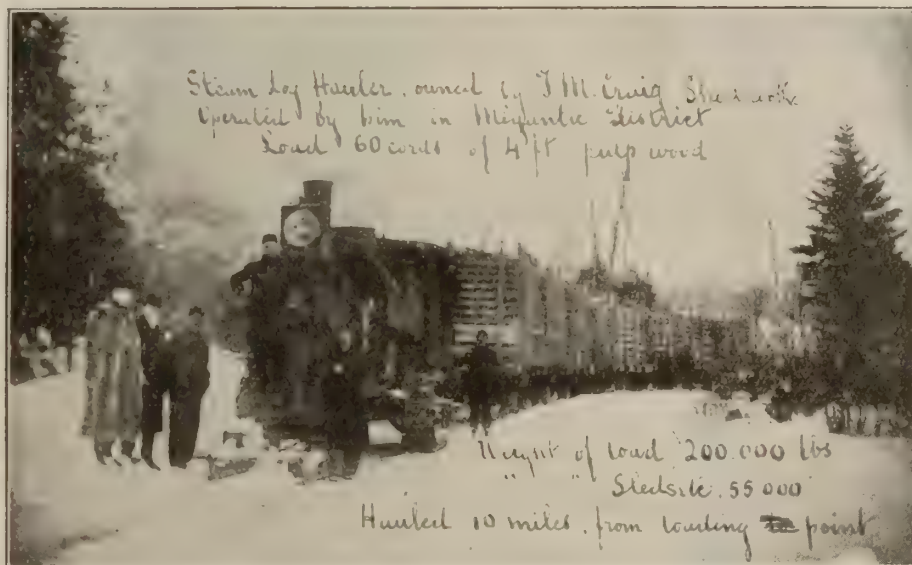 Steam Log Hauler. owned by J M. Craig
Operated by him in Megantic District
Load 60 cords of 4 ft pulp wood
Weight of load 200.000 lbs
" " 55 000
Hauled 10 miles. from loading point